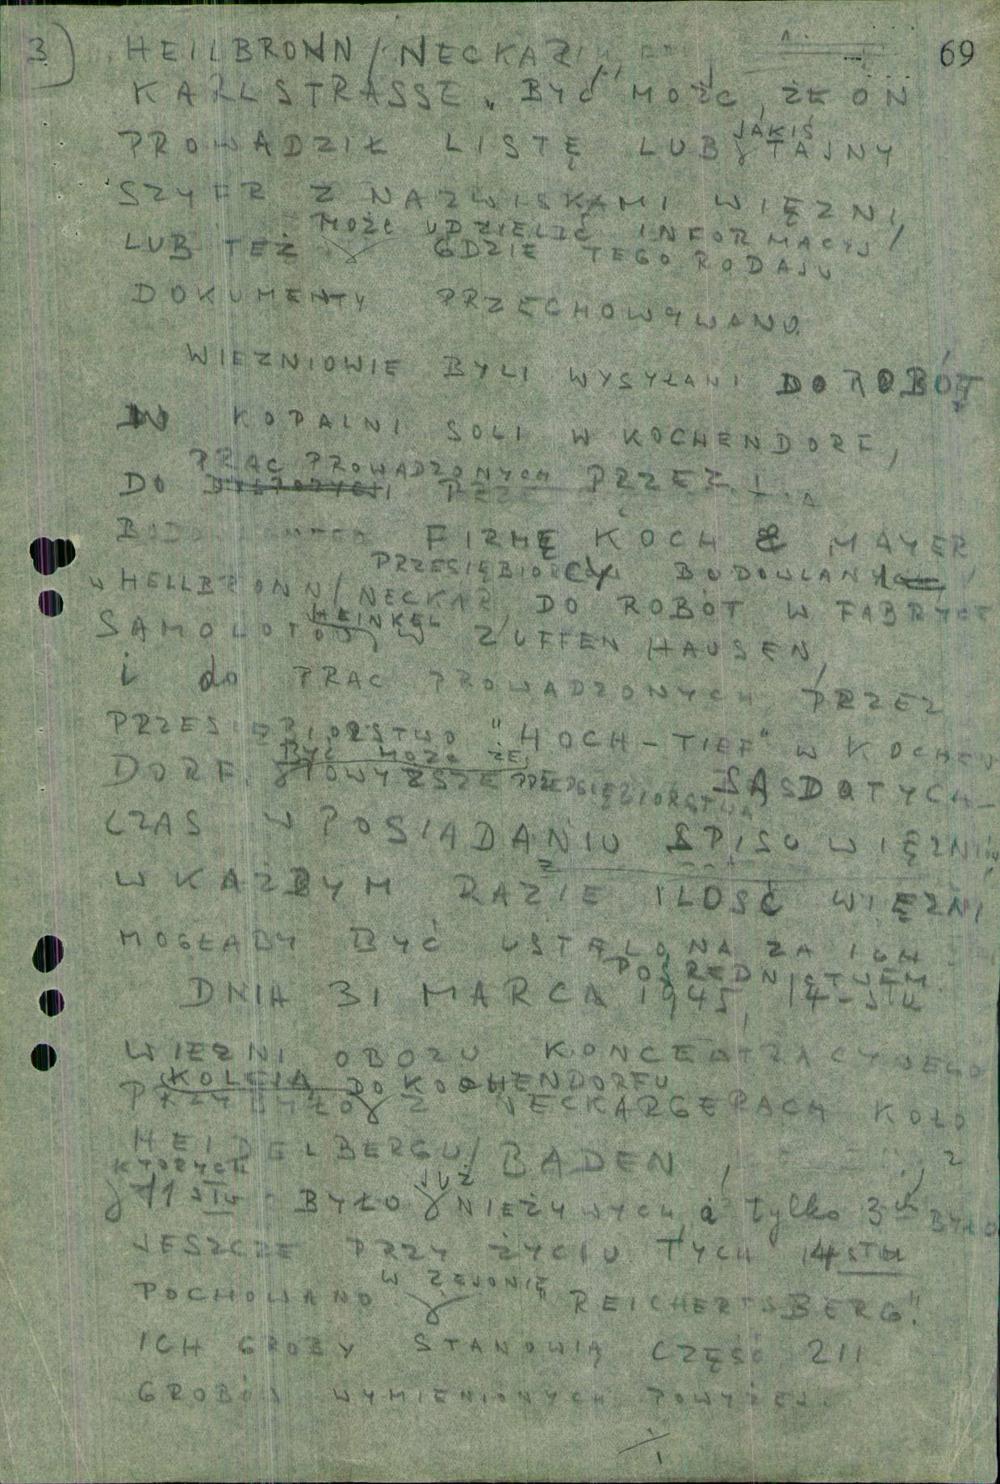 3) HEILBRONN/NECKAR, 69
KARLSTRASSE. BYĆ MOŻE, ŻE ON
PROWADZIŁ LISTĘ LUB JAKIŚ TAJNY
SZYFR Z NAZWISKAMI WIĘŹNI,
LUB TEŻ MOŻE UDZIELIĆ INFORMACYJ,
GDZIE TEGO RODZAJU
DOKUMENTY PRZECHOWYWANO.
WIEZNIOWIE BYLI WYSYŁANI DO ROBÓT
W KOPALNI SOLI W KOCHENDORF,
DO PRAC PROWADZONYCH PRZEZ
FIRMĘ KOCH & MAYER
PRZESIĘBIORCY BUDOWLANY
W HEILBRONN/NECKAR, DO ROBÓT W FABRYCE
SAMOLOTÓW HEINKEL W ZUFFENHAUSEN,
i do PRAC PROWADZONYCH PRZEZ
PRZESIĘBIORSTWO "HOCH-TIEF" W KOCHEN
DORF. BYĆ MOŻE ŻE POWYŻSZE PRZEDSIĘBIORSTWA SĄ DOTYCH-
CZAS W POSIADANIU SPISU WIĘŹNIÓW
W KAŻDYM RAZIE ILOŚĆ WIĘŹNI
MOGŁABY BYĆ USTALONA ZA ICH
POŚREDNICTWEM.
DNIA 31 MARCA 1945, 14-STU
WIEZNI OBOZU KONCENTRACYJNEGO
PRZYBYŁO KOLEJĄ DO KOCHENDORFU
Z NECKARGERACH KOŁO
HEIDELBERGU/BADEN, Z
KTÓRYCH 11 STU BYŁO JUŻ NIEŻYWYCH, a tylko 3ch BYŁO
JESZCZE PRZY ŻYCIU TYCH 14 STU
POCHOWANO W REJONIE "REICHERTSBERG".
ICH GROBY STANOWIĄ CZĘŚĆ 211
GROBÓW WYMIENIONYCH POWYŻEJ.